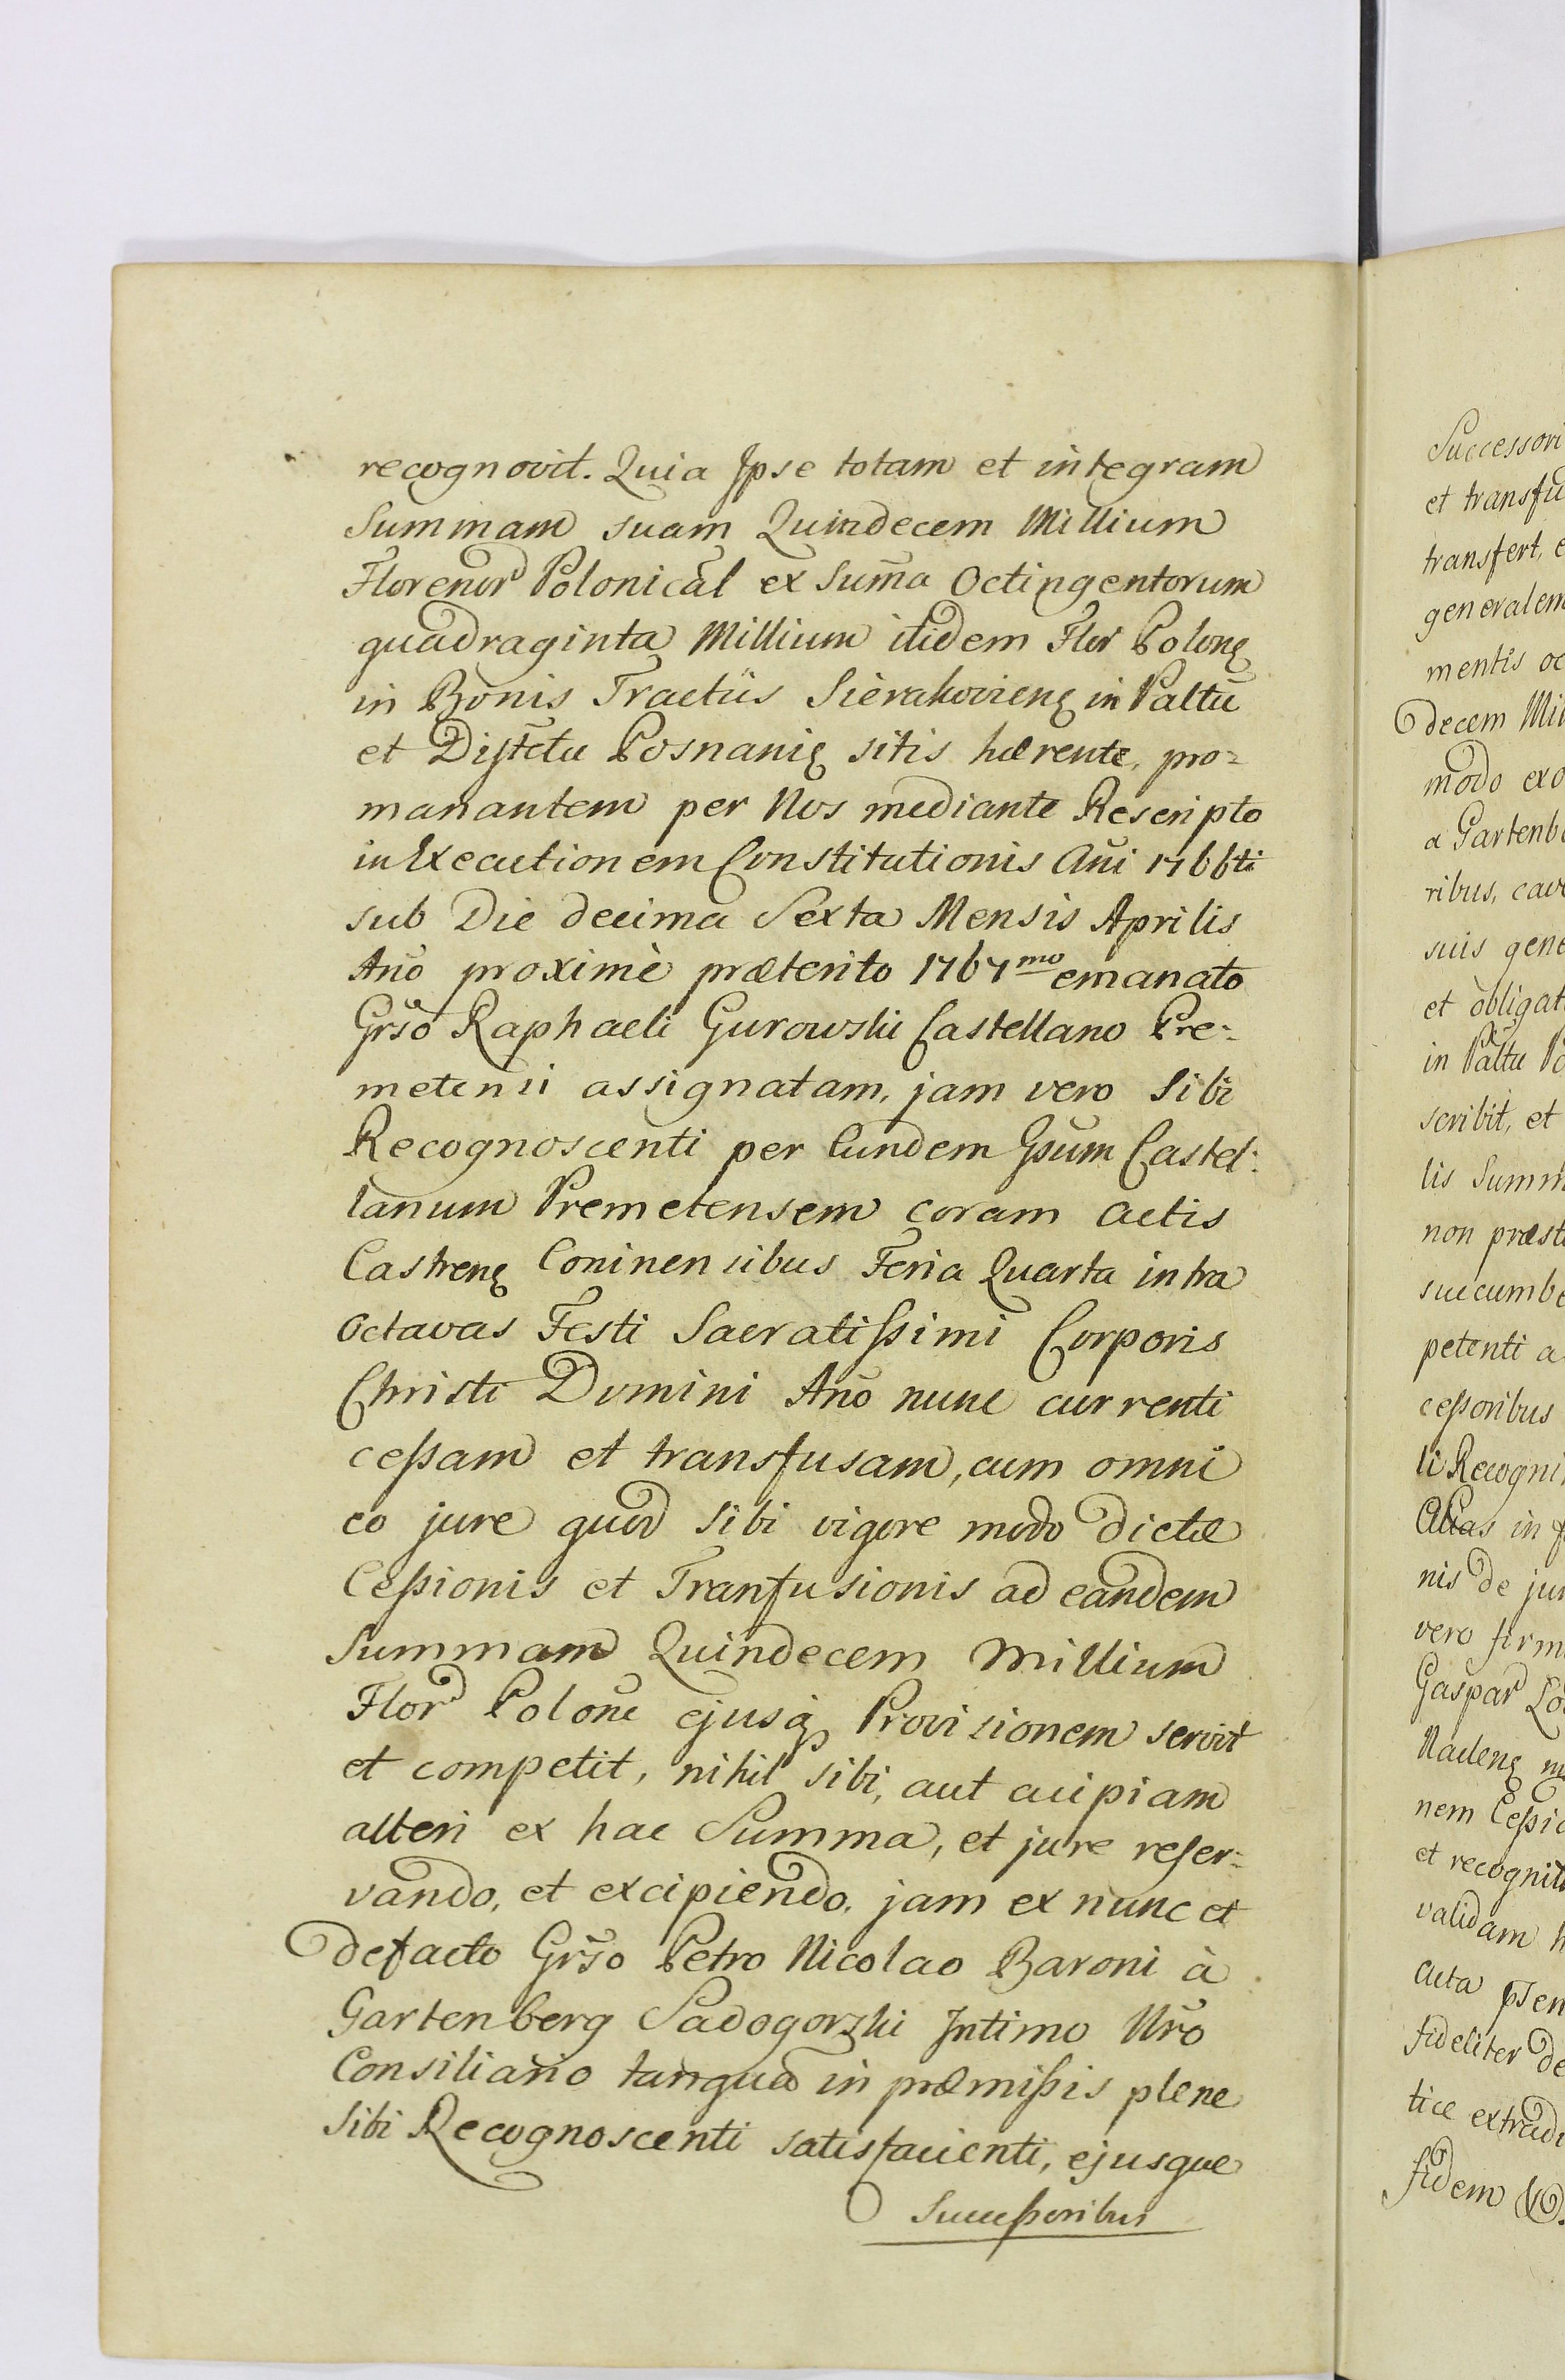 recognovit. Quia Ipse totam et integram
Summam suam Quindecem Millium
Florenor Polonical ex Sum̄a Octingentorum
quadraginta Millium itidem Flor Polonę
in Bonis Tractûs Sierakovienę in Paltū
et Dist̄ctu Posnanię sitis hærente, pro=
manantem per Nos mediante Rescripto
in Executionem Constitutionis Añi 1766ti
sub Die decima Sexta Mensis Aprilis
Año proximè præterito 1767mo emanato
Grso Raphaeli Gurowski Castellano Pre=
metensi assignatam, jam vero Sibi
Recognoscenti per Eundem Gsum Castel=
lanum Premetensem coram Actis
Castrenę Coninensibus Feria Quarta intra
Octavas Festi Sacratißimi Corporis
Christi Domini Año nunc currenti
ceßam et transfusam, cum omni
eo jure quod Sibi vigore modo dictæ
Ceßionis et Tranfusionis ad eandem
Summam Quindecem Millium
Flor Polone ejusq Provisionem servit
et competit, nihil sibi, aut cuipiam
alteri ex hac Summa, et jure reser=
vando, et excipiendo, jam ex nunc et
defacto Grso Petro Nicolao Baroni à
Gartenberg Sadogorski Intimo Nro
Consiliario tanquã in præmißis plene
Sibi Recognoscenti satisfacienti, ejusque
Succeßoribus
Successori
et transfu
transfert, e
generalem
mentis oc
decem Mil
modo exo
a Gartenb
ribus, cave
suis gene
et obligat
in Paltu Po
scribit, et
lis Summ
non præst
succumbe
petenti a
ceßoribus
li Recogni
Alias in f
nis de jur
vero firm
Gaspar
Naclenę
nem Ceßio
et recognit
validam h
Acta psen
fideliter de
tice extrad
fidem